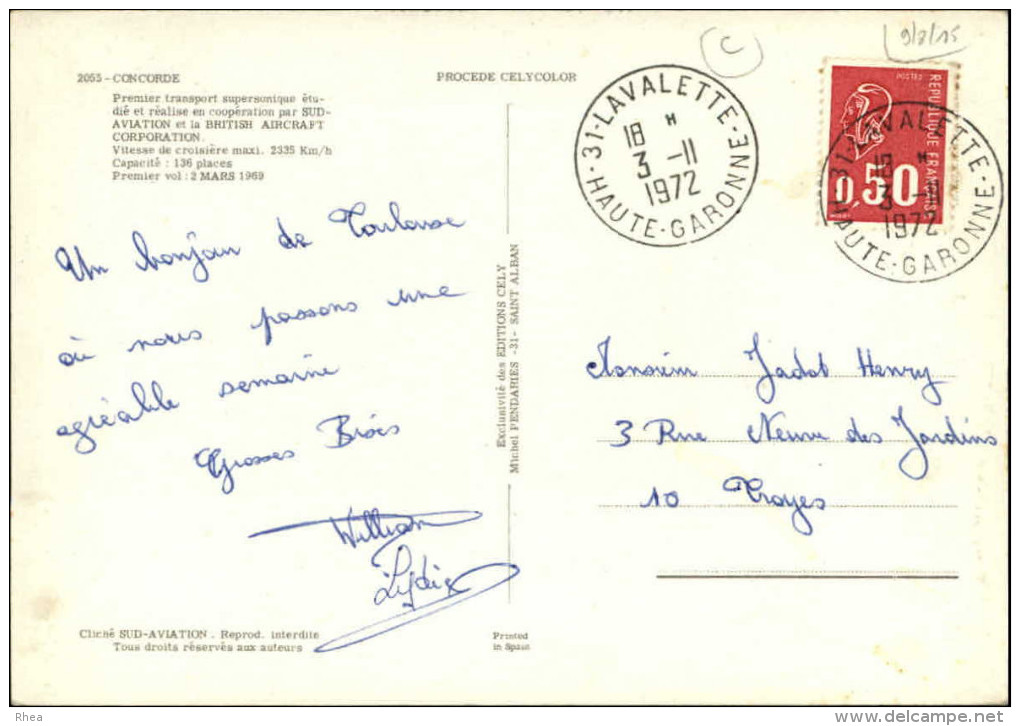 C
9/8/15
2055 - CONCORDE
PROCEDE CELYCOLOR
Premier transport supersonique étu-
dié et réalise en coopération par SUD-
AVIATION et la BRITISH AIRCRAFT
CORPORATION.
Vitesse de croisière maxi. 2335 Km/h
Capacité : 136 places
Premier vol : 2 MARS 1969
31 - LAVALETTE
18 H
3 -11
1972
HAUTE-GARONNE
POSTES
REPUBLIQUE FRANÇAISE
0,50
31 - LAVALETTE
18 H
3 -11
1972
HAUTE-GARONNE
Un bonjour de Toulouse
où nous passons une
agréable semaine
Grosses Bises
William
Lydie
Exclusivité des EDITIONS CELY
Michel PENDARIES -31- SAINT ALBAN
Monsieur Jadot Henry
3 Rue Neuve des Jardins
10 Troyes
Cliché SUD-AVIATION . Reprod. interdite
Tous droits réservés aux auteurs
Printed
in Spain
Rhea
www.delcampe.net